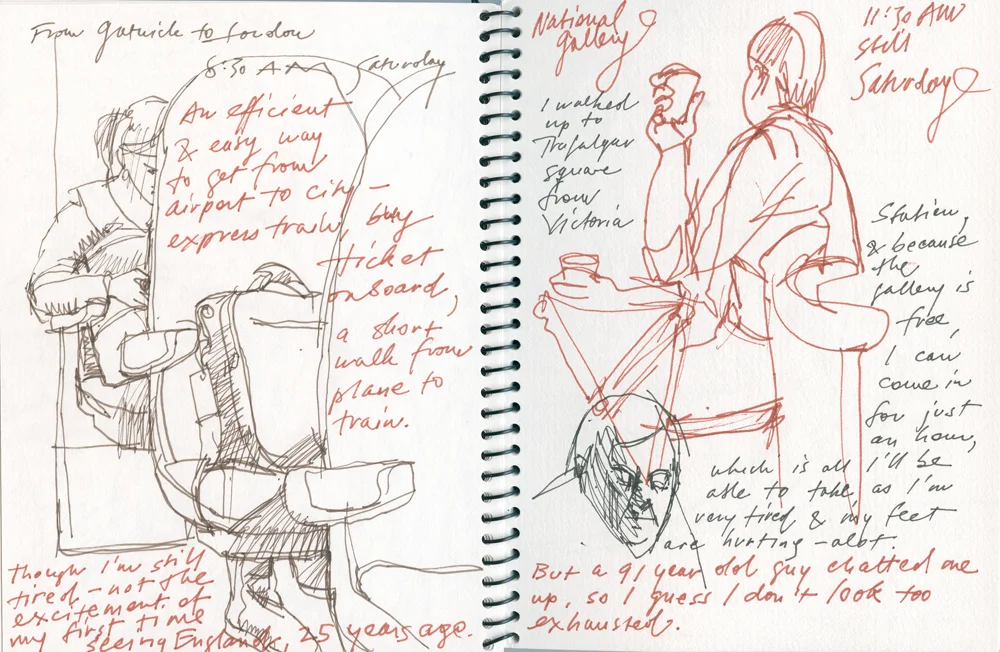 From Gatwick to London
8:30 AM Saturday
An efficient
& easy way
to get from
airport to city –
express train, buy
ticket
on board,
a short
walk from
plane to
train.
Though I'm still
tired – not the
excitement of
my first time
seeing England, 25 years ago.
National
Gallery
11:30 AM
still
Saturday
I walked
up to
Trafalgar
square
from
Victoria
Station,
& because
the
gallery is
free,
I can
come in
for just
an hour,
which is all I'll be
able to take, as I'm
very tired & my feet
are hurting – alot.
But a 91 year old guy chatted me
up, so I guess I don't look too
exhausted.